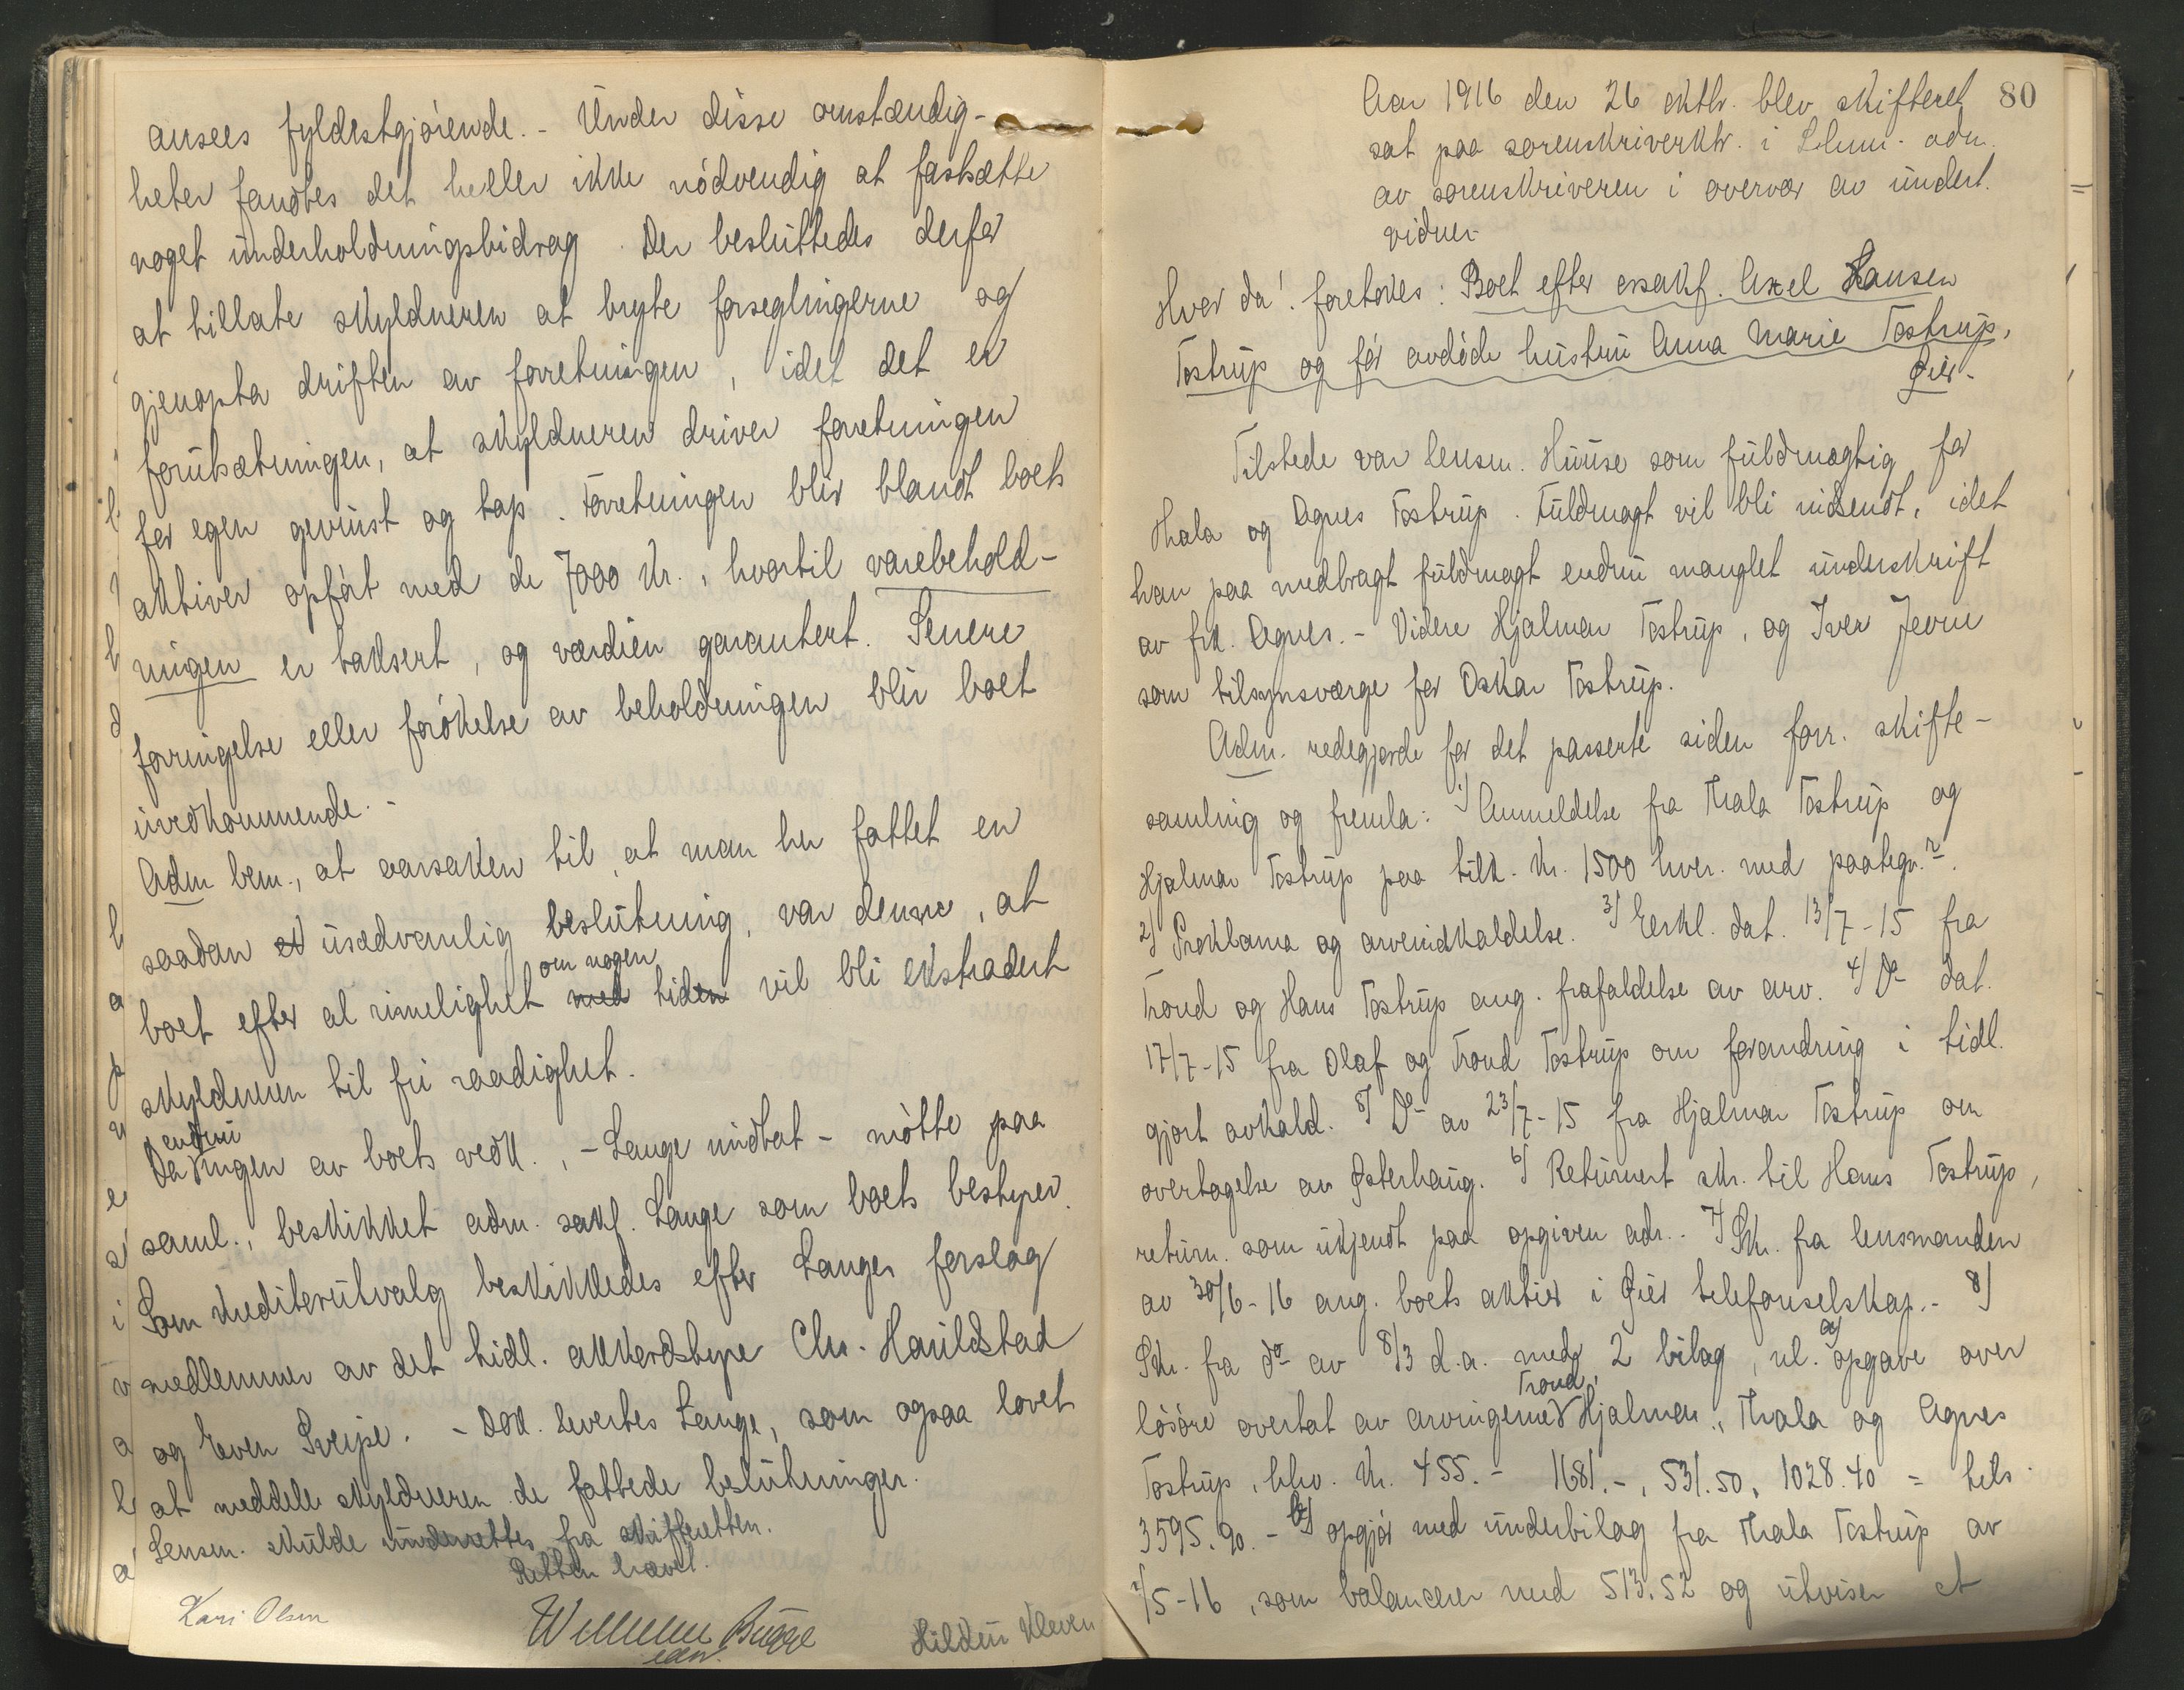 ansees fyldestgjørende. - Under disse omstændig-
heter fandtes det heller ikke nødvendig at fastsætte
noget underholdningsbidrag. Der besluttedes derfor
at tillate skyldneren at bryte forseglingerne og
gjenopta driften av forretningen, idet det er
forutsætningen, at skyldneren driver forretningen
for egen gevinst og tap. Forretningen blir blandt boets
aktiver opført med de 7000 kr., hvortil varebehold-
ningen er taksert, og værdien garantert. Senere
forringelse eller forøkelse av beholdningen blir boet
uvedkommende. -
Adm bem., at aarsaken til, at man her fattet en
saadan usædvanlig beslutning, var denne, at
om nogen
boet efter al rimelighet med tiden vil bli ekstradert
skyldneren til fri raadighet.
endnu
Da ingen av boets vedk., - Lange undtat - møtte paa
saml., beskikket adm. sakf. Lange som boets bestyrer.
Som kreditorutvalg beskikkedes efter Langes forslag
medlemmer av det tidl. akkordstyre Chr. Haugstad
og Even Sveipe. - Dok. levertes Lange, som ogsaa lovet
at meddele skyldneren de fattede beslutninger.
Lensm. skulde underrettes fra skifteretten.
Retten hævet.
Kari Olsen
Wilhelm Bugge
Hildur Kleven
80
Aar 1916 den 26 oktbr. blev skifteret
sat paa sorenskriverktr. i Lhmr. adm.
av sorenskriveren i overvær av undert.
vidner
Hvor da! foretokes: Boet efter enkem. Axel Hansen
Tostrup og før avdøde hustru Anna Marie Tostrup,
Øier.
Tilstede var lensm. Huuse som fuldmægtig for
Thala og Agnes Tostrup. Fuldmagt vil bli indsendt, idet
han paa medbragt fuldmagt endnu manglet underskrift
av frk. Agnes. - Videre Hjalmar Tostrup, og Iver Jevne
som tilsynsværge for Oskar Tostrup.
Adm. redegjorde for det passerte siden forr. skifte-
samling og fremla: 1) Anmeldelse fra Thala Tostrup og
Hjalmar Tostrup paa tilk. kr. 1500 hver. med paategn.
2) Proklama og arveindkaldelse. 3) Erkl. dat. 13/7-15 fra
Trond og Hans Tostrup ang. frafaldelse av arv. 4) Do dat.
17/7-15 fra Olaf og Trond Tostrup om forandring i tidl.
gjort avkald. 5) Do av 23/7-15 fra Hjalmar Tostrup om
overtagelse av Østerhaug. 6) Returnert skr. til Hans Tostrup,
return. som ukjendt paa opgiven adr. - 7) Skr. fra lensmanden
av 30/6-16 ang. boets aktier i Øier telefonselskap. - 8)
Skr. fra do av 8/3 d.a. med 2 bilag, nl. a) opgave over
Trond,
løsøre overtat av arvingerne Hjalmar, Thala og Agnes
Tostrup, hhv. kr. 455.- 1681.-, 531.50, 1028.40 = tils.
3595.90. - b) opgjør med underbilag fra Thala Tostrup av
/5-16, som balancerer med 513.52 og utviser et